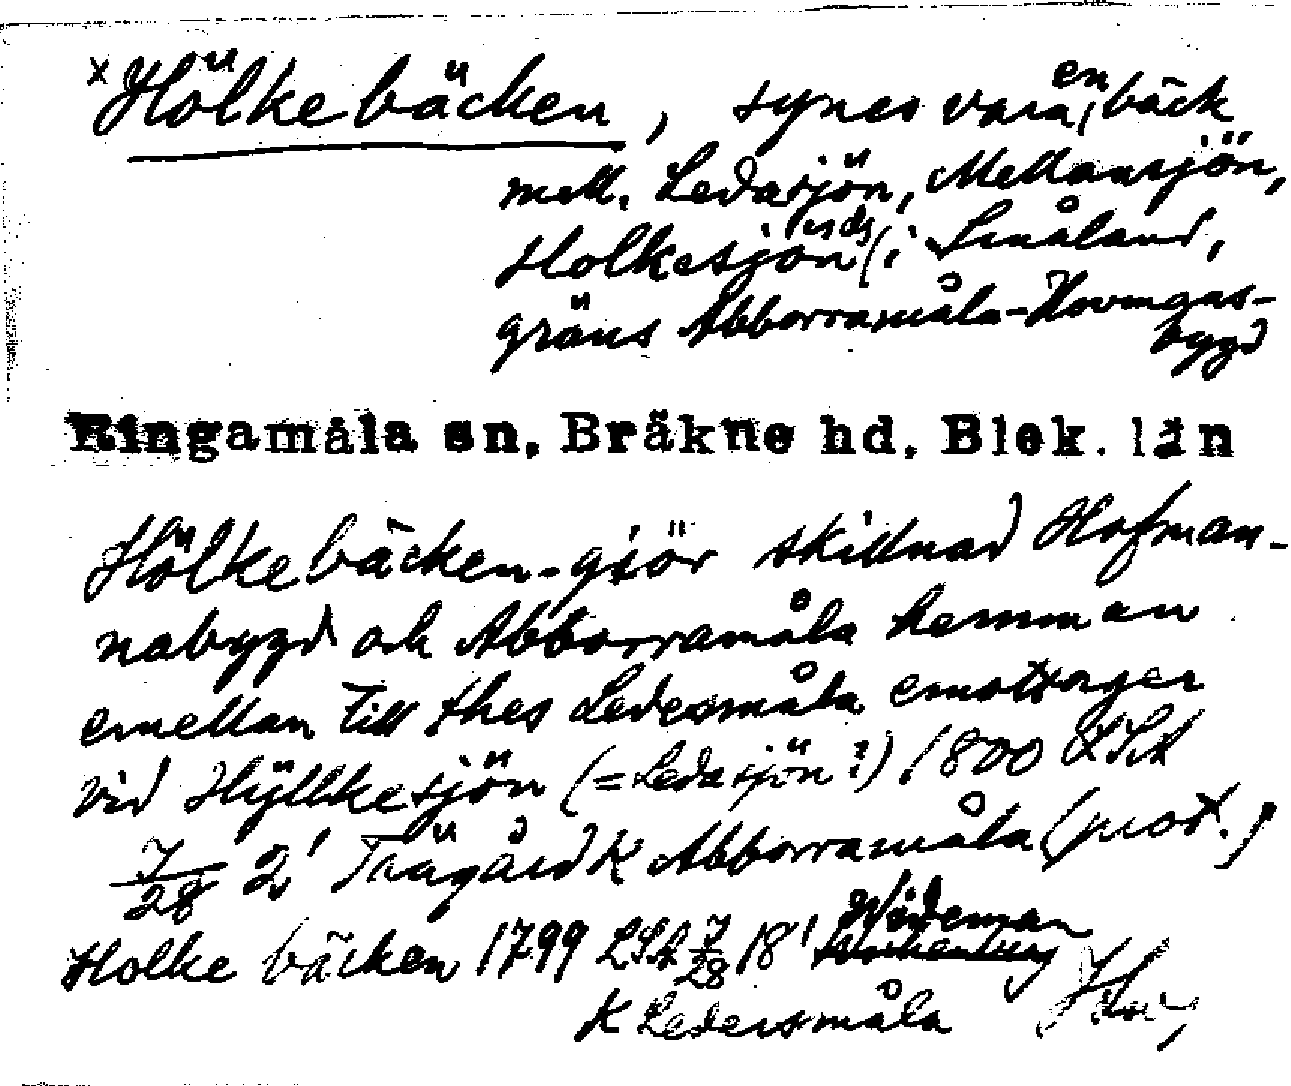 x Hölkebäcken, synes vara en bäck
mell. Ledasjön, Mellansjön,
Holkesjön i Småland,
gräns Abborramåla-Hovmgas-
bygd
Ringamåla sn, Bräkne hd, Blek. län
Hölkebäcken-giör skillnad Hofman-
nabygd och Abborramåla hemman
emellan till thes Ledesmåla emottager
vid Hÿllkesjön (=Ledasjön?) 1800 LSA
7/28 2' Trägård K Abborramåla (prot.)
Holke bäcken 1799 LSA 7/28 18' Wideman
K Ledersmåla